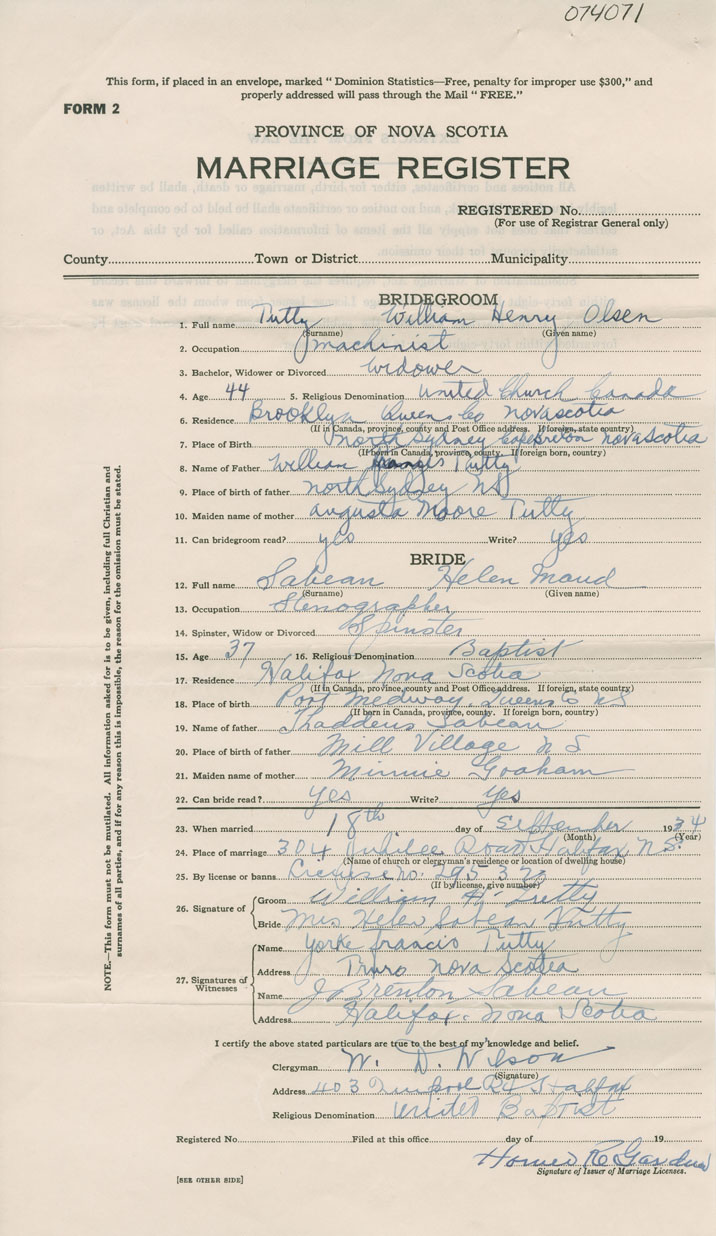 074071
This form, if placed in an envelope, marked “ Dominion Statistics—Free, penalty for improper use $300,” and
properly addressed will pass through the Mail “ FREE.”
FORM 2
PROVINCE OF NOVA SCOTIA
MARRIAGE REGISTER
REGISTERED No.
(For use of Registrar General only)
County Town or District Municipality
BRIDEGROOM
1. Full name Tutty William Henry Olsen
(Surname) (Given name)
2. Occupation machinist
3. Bachelor, Widower or Divorced Widower
4. Age 44 5. Religious Denomination United Church Canada
6. Residence Brooklyn Queens Co nova scotia
(If in Canada, province, county and Post Office address. If foreign, state country)
7. Place of Birth North Sydney Cape Breton nova scotia
(If born in Canada, province, county. If foreign born, country)
8. Name of Father William francis Tutty
9. Place of birth of father north Sydney NS
10. Maiden name of mother augusta Moore Tutty
11. Can bridegroom read? yes Write? yes
BRIDE
12. Full name Sabean Helen Maud
(Surname) (Given name)
13. Occupation Stenographer
14. Spinster, Widow or Divorced Spinster
15. Age 37 16. Religious Denomination Baptist
17. Residence Halifax Nova Scotia
(If in Canada, province, county and Post Office address. If foreign, state country)
18. Place of birth Port Medway, Queens Co NS
(If born in Canada, province, county. If foreign born, country)
19. Name of father Thaddeus Sabean
20. Place of birth of father Mill Village N S
21. Maiden name of mother Minnie Graham
22. Can bride read? Yes Write? Yes
23. When married 18th day of September 1934
(Month) (Year)
24. Place of marriage 304 Jubilee Road Halifax N.S.
(Name of church or clergyman's residence or location of dwelling house)
25. By license or banns License no.
(If by license, give number)
26. Signature of Groom William H. Tutty
Bride Mrs Helen Sabean Tutty
27. Signatures of Witnesses Name Yorke francis Tutty
Address Truro nova scotia
Name J Brenton Sabean
Address Halifax Nova Scotia
I certify the above stated particulars are true to the best of my knowledge and belief.
Clergyman W. D. Wilson
(Signature)
Address 403 Rd Halifax
Religious Denomination United Baptist
Registered No. Filed at this office day of 19
Signature of Issuer of Marriage Licenses.
[SEE OTHER SIDE]
NOTE.—This form must not be mutilated. All information asked for is to be given, including full Christian and
surnames of all parties, and if for any reason this is impossible, the reason for the omission must be stated.